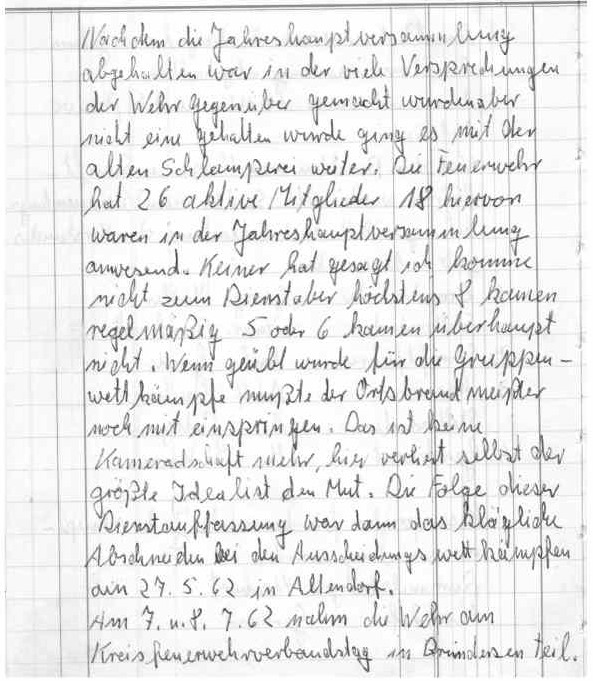 Nachdem die Jahreshauptversammlung
abgehalten war in der viele Versprechungen
der Wehr gegenüber gemacht wurden aber
nicht eine gehalten wurde ging es mit der
alten Schlamperei weiter. Die Feuerwehr
hat 26 aktive Mitglieder 18 hiervon
waren in der Jahreshauptversammlung
anwesend. Keiner hat gesagt ich komme
nicht zum Dienst aber höchstens 8 kamen
regelmäßig 5 oder 6 kamen überhaupt
nicht. Wenn geübt wurde für die Gruppen-
wettkämpfe mußte der Ortsbrandmeister
noch mit einspringen. Das ist keine
Kameradschaft mehr, hier verliert selbst der
größte Idealist den Mut. Die Folge dieser
Dienstauffassung war dann das klägliche
Abschneiden bei den Ausscheidungswettkämpfen
am 27. 5. 62 in Altendorf.
Am 7. u. 8. 7. 62 nahm die Wehr am
Kreisfeuerwehrverbandstag in Bründersen teil.